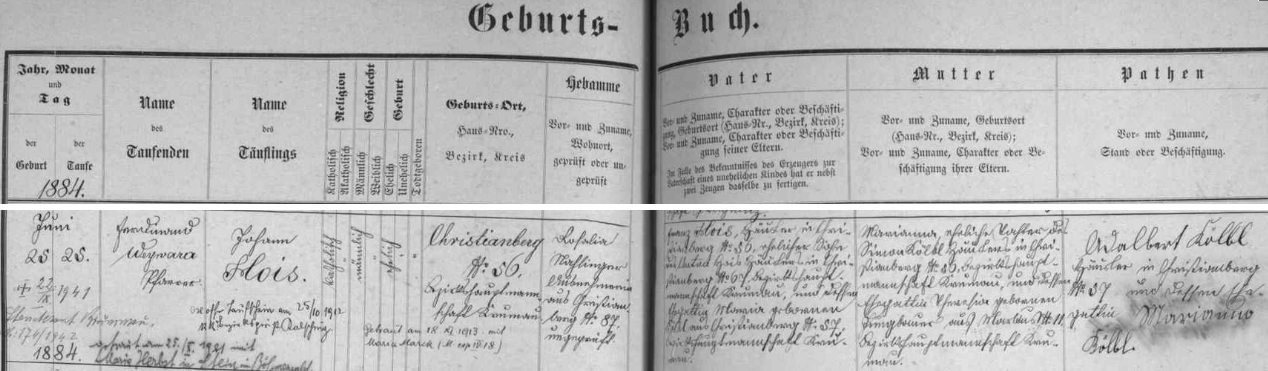 Geburts-Buch.
Jahr, Monat
und
Tag
der
Geburt
der
Taufe
1884.
Name
des
Taufenden
Name
des
Täuflings
Religion
Katholisch
Akatholisch
Geschlecht
Männlich
Weiblich
Geburt
Ehelich
Unehelich
Todtgeboren
Geburts-Ort,
Haus-Nro.,
Bezirk, Kreis
Hebamme
Vor- und Zuname,
Wohnort,
geprüft oder un-
geprüft
Vater
Vor- und Zuname, Charakter oder Beschäfti-
gung, Geburtsort (Haus-Nr., Bezirk, Kreis);
Vor- und Zuname, Charakter oder Beschäfti-
gung seiner Eltern.
Im Falle des Bekenntnisses des Erzeugers zur
Vaterschaft eines unehelichen Kindes hat er nebst
zwei Zeugen dasselbe zu fertigen.
Mutter
Vor- und Zuname, Geburtsort
(Haus-Nr., Bezirk, Kreis);
Vor- und Zuname, Charakter oder Be-
schäftigung ihrer Eltern.
Pathen
Vor- und Zuname,
Stand oder Beschäftigung.
Juni
25 25.
1941
1884.
Ferdinand
Weywara
Pfarrer.
Johann
Hois.
katholisch
männlich
ehelich
Christianberg
№ 56.
Bezirkshauptmann-
schaft Krumau
Rosalia
Nahlinger
aus Christian-
berg № 87.
ungeprüft.
Getraut am 18. X. 1913 mit
getraut am 25. 1921 mit
Franz Hois, Häusler in Chri-
stianberg № 56, ehelicher Sohn
Häuslers in Chri-
stianberg № 67 Bezirkshaupt-
mannschaft Krumau, und dessen
Maria geborenen
aus Christianberg № 57,
Bezirkshauptmannschaft Kru-
mau.
Marianna, eheliche Tochter des
Simon Kölbl Häuslers in Chri-
stianberg Bezirkshaupt-
mannschaft Krumau, und dessen
Ehegattin Theresia geborenen
Jungbauer aus № 11.
Bezirkshauptmannschaft Kru-
mau.
Adalbert Kölbl
Häusler in Christianberg
№ 57 und dessen Ehe-
gattin Marianna
Kölbl.